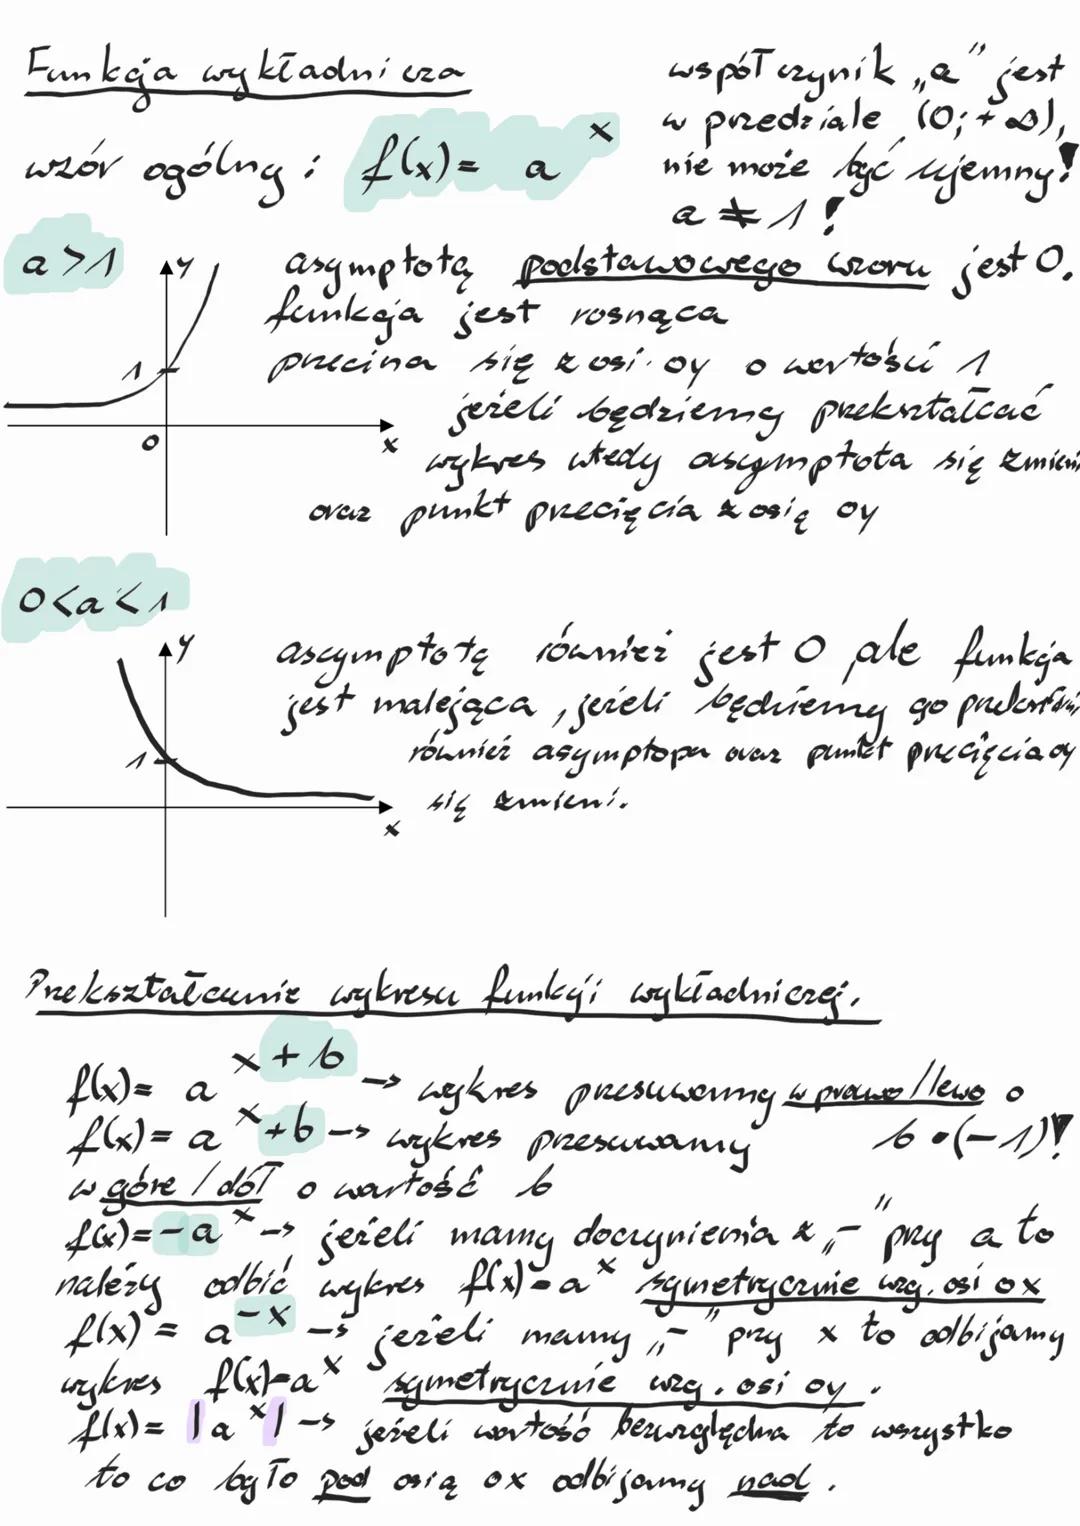 Funkcja wykładnicza
wzór ogólny : f(x)= a^x
współczynik „a" jest
w przedziale (0;+∞),
nie może być ujemny!
a ≠ 1 !
a >1
y
1
0
x
asymptotą podstawowego wzoru jest 0.
funkcja jest rosnąca
przecina się z osi oy o wartości 1
jeżeli będziemy przekształcać
wykres wtedy asymptota się zmieni
oraz punkt przecięcia z osią oy
0<a<1
y
1
x
asymptotą również jest 0 ale funkcja
jest malejąca , jeżeli będziemy go
również asymptopa oraz punkt przecięcia oy
się zmieni.
Przekształcanie wykresu funkcji wykładniczej.
f(x)= a^(x+b) -> wykres przesuwamy w prawo / lewo o
b •(-1)!
f(x)= a^x +b -> wykres przesuwamy
w górę / dół o wartość b
f(x)= -a^x -> jeżeli mamy doczynienia z „-" przy a to
należy odbić wykres f(x)=a^x symetrycznie wzg. osi ox
f(x)= a^-x -> jeżeli mamy „-" przy x to odbijamy
wykres f(x)=a^x symetrycznie wzg. osi oy .
f(x)= |a^x| -> jeżeli wartość bezwzględna to wszystko
to co było pod osią ox odbijamy nad .